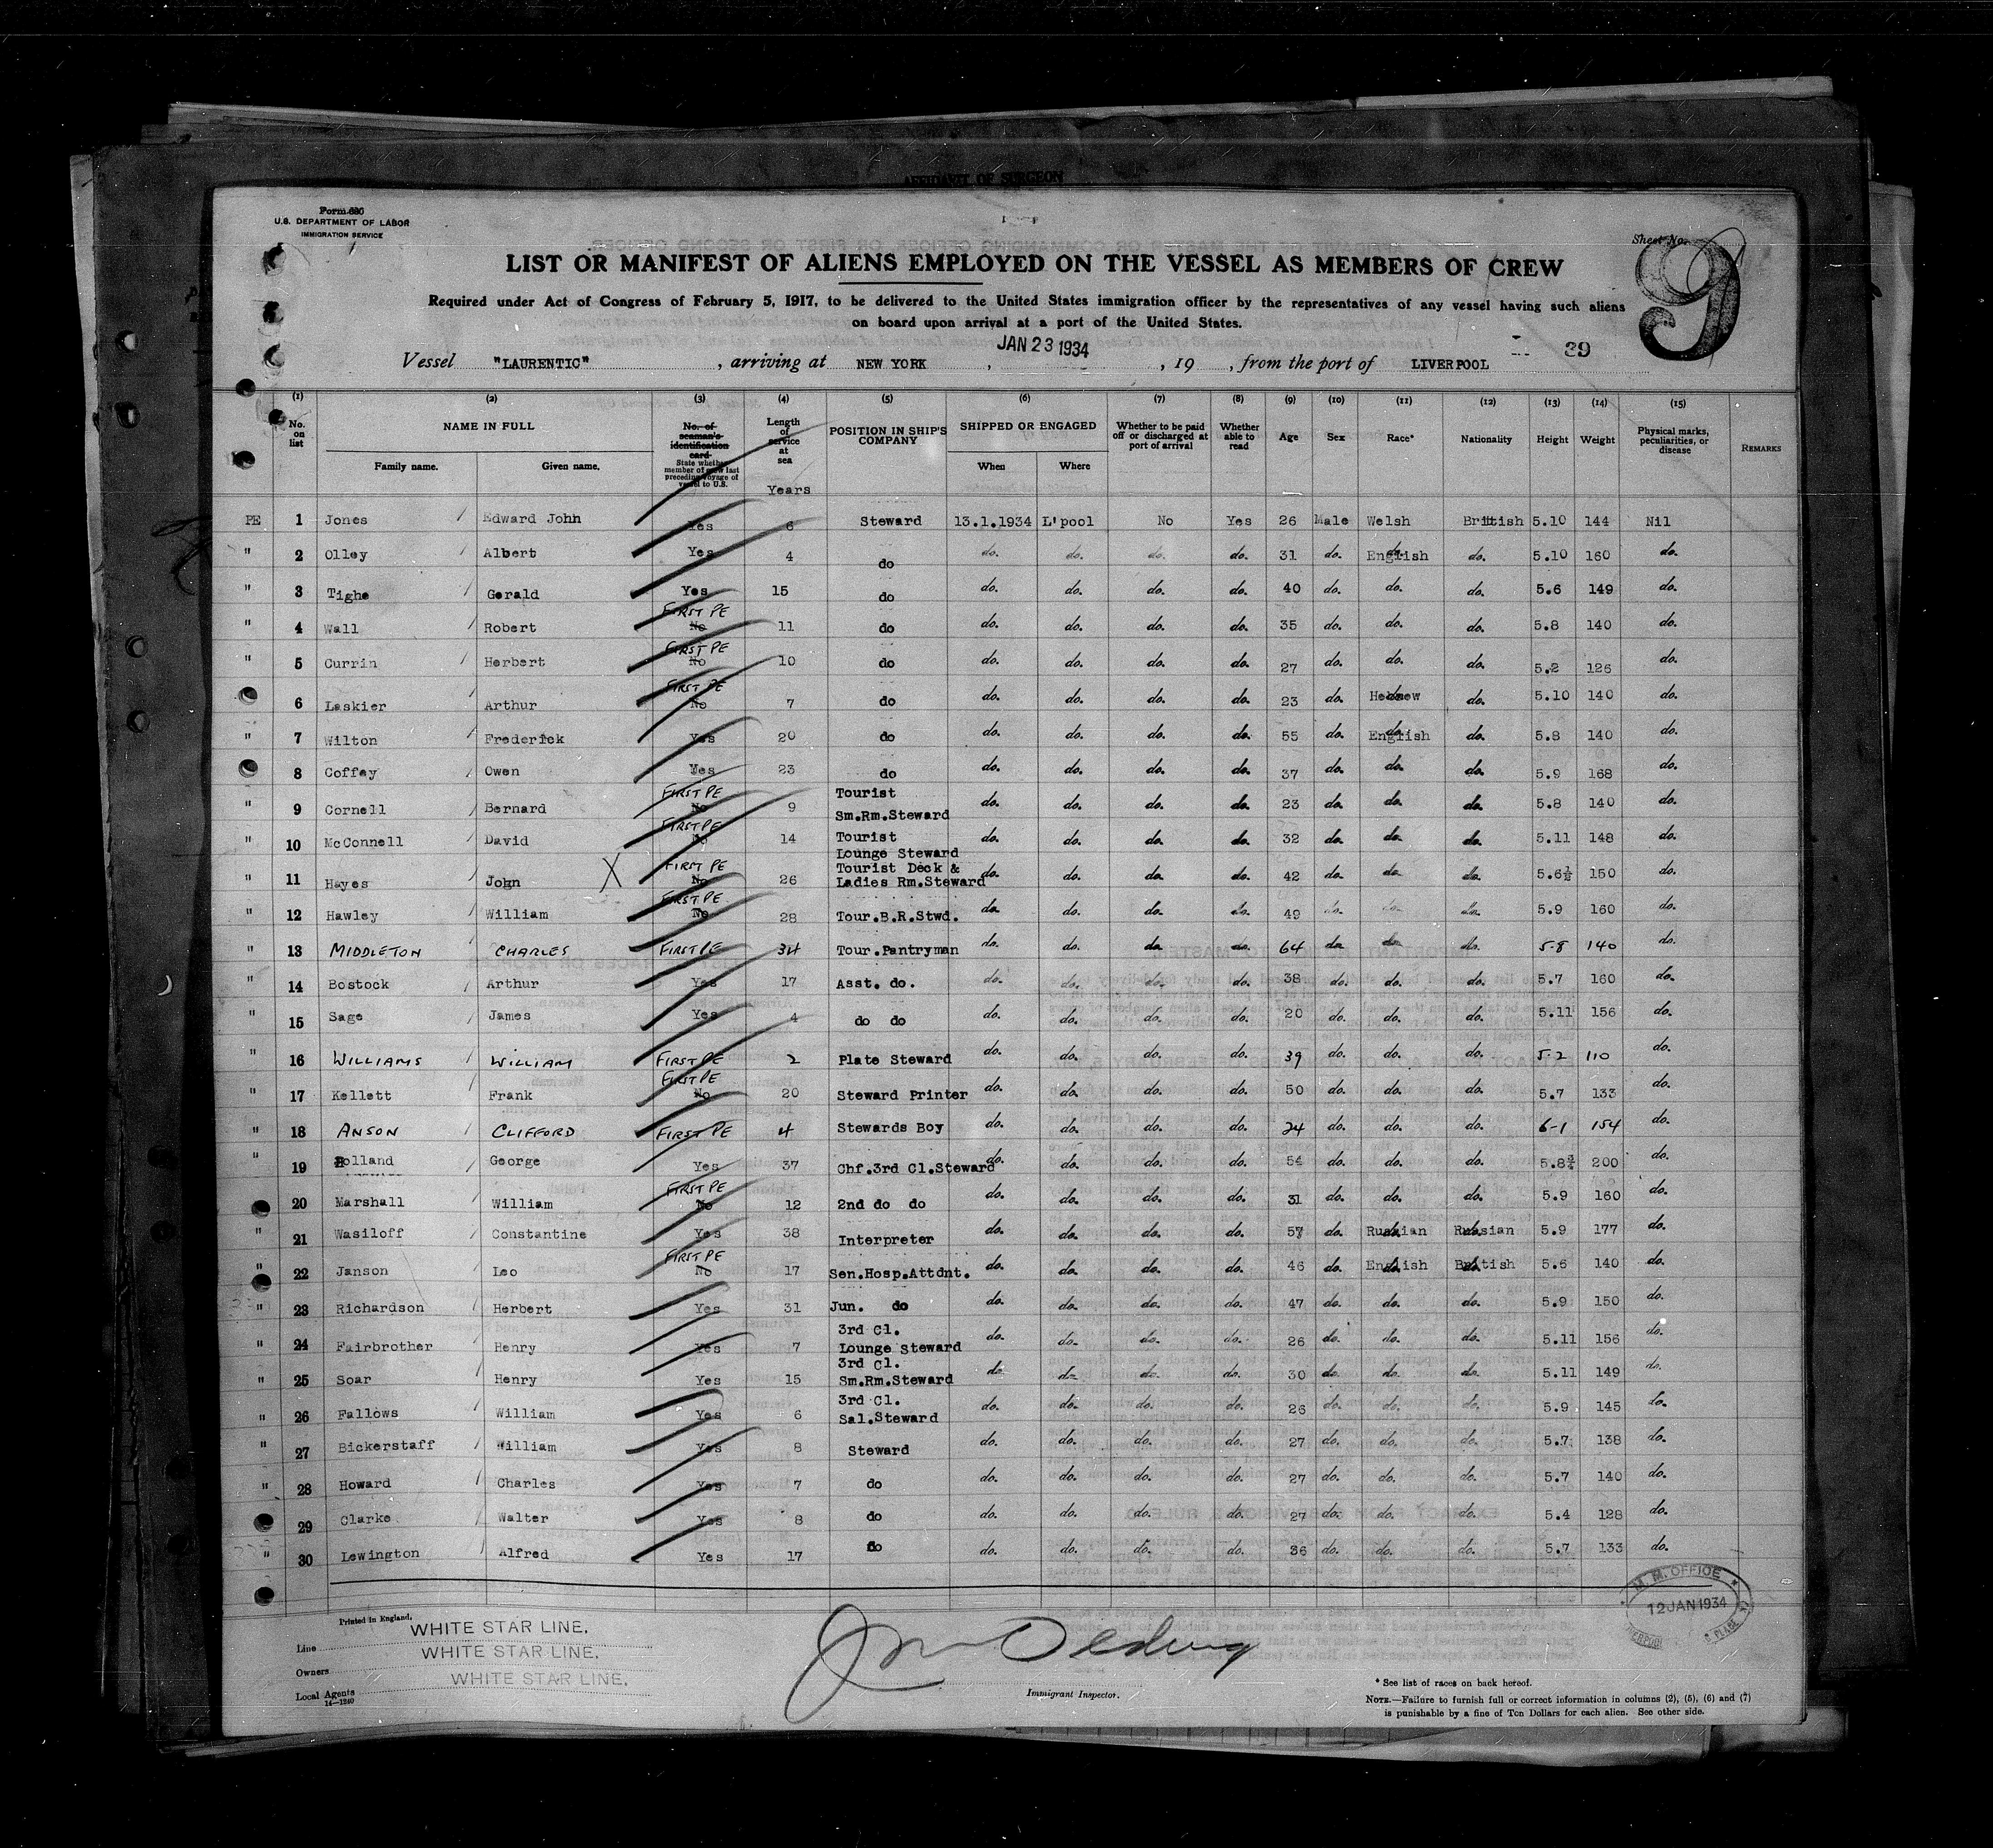 AFFIDAVIT OF SURGEON
Form 680
U.S. DEPARTMENT OF LABOR
IMMIGRATION SERVICE
Sheet No. 9
LIST OR MANIFEST OF ALIENS EMPLOYED ON THE VESSEL AS MEMBERS OF CREW
Required under Act of Congress of February 5, 1917, to be delivered to the United States immigration officer by the representatives of any vessel having such aliens
on board upon arrival at a port of the United States.
Vessel "LAURENTIC", arriving at NEW YORK, JAN 23 1934, 19 , from the port of LIVERPOOL 39
(1) (2) (3) (4) (5) (6) (7) (8) (9) (10) (11) (12) (13) (14) (15)
No. on list NAME IN FULL Family name. Given name. No. of seaman's identification card State whether member of crew last preceding voyage of vessel to U.S. Length of service at sea Years POSITION IN SHIP'S COMPANY SHIPPED OR ENGAGED When Where Whether to be paid off or discharged at port of arrival Whether able to read Age Sex Race* Nationality Height Weight Physical marks, peculiarities, or disease REMARKS
PE 1 Jones Edward John Yes 6 Steward 13.1.1934 L'pool No Yes 26 Male Welsh British 5.10 144 Nil
" 2 Olley Albert Yes 4 do do. do. do. do. 31 do. English do. 5.10 160 do.
" 3 Tighe Gerald Yes 15 do do. do. do. do. 40 do. do. do. 5.6 149 do.
" 4 Wall Robert FIRST PE No 11 do do. do. do. do. 35 do. do. do. 5.8 140 do.
" 5 Currin Herbert FIRST PE No 10 do do. do. do. do. 27 do. do. do. 5.2 126 do.
" 6 Laskier Arthur FIRST PE No 7 do do. do. do. do. 23 do. Hebrew do. 5.10 140 do.
" 7 Wilton Frederick Yes 20 do do. do. do. do. 55 do. English do. 5.8 140 do.
" 8 Coffey Owen Yes 23 do do. do. do. do. 37 do. do. do. 5.9 168 do.
" 9 Cornell Bernard FIRST PE No 9 Tourist Sm.Rm.Steward do. do. do. do. 23 do. do. do. 5.8 140 do.
" 10 McConnell David FIRST PE No 14 Tourist Lounge Steward do. do. do. do. 32 do. do. do. 5.11 148 do.
" 11 Hayes John X FIRST PE No 26 Tourist Deck & Ladies Rm.Steward do. do. do. do. 42 do. do. do. 5.6½ 150 do.
" 12 Hawley William FIRST PE No 28 Tour.B.R.Stwd. do. do. do. do. 49 do. do. do. 5.9 160 do.
" 13 MIDDLETON CHARLES FIRST PE 34 Tour.Pantryman do. do. do. do. 64 do. do. do. 5-8 140 do.
" 14 Bostock Arthur Yes 17 Asst. do. do. do. do. do. 38 do. do. do. 5.7 160 do.
" 15 Sage James Yes 4 do do do. do. do. do. 20 do. do. do. 5.11 156 do.
" 16 WILLIAMS WILLIAM FIRST PE 2 Plate Steward do. do. do. do. 39 do. do. do. 5-2 110 do.
" 17 Kellett Frank FIRST PE No 20 Steward Printer do. do. do. do. 50 do. do. do. 5.7 133 do.
" 18 ANSON CLIFFORD FIRST PE 4 Stewards Boy do. do. do. do. 24 do. do. do. 6-1 154 do.
" 19 Holland George Yes 37 Chf.3rd Cl.Steward do. do. do. do. 54 do. do. do. 5.8¾ 200 do.
" 20 Marshall William FIRST PE No 12 2nd do do do. do. do. do. 31 do. do. do. 5.9 160 do.
" 21 Wasiloff Constantine Yes 38 Interpreter do. do. do. do. 57 do. Russian Russian 5.9 177 do.
" 22 Janson Leo FIRST PE No 17 Sen.Hosp.Attdnt. do. do. do. do. 46 do. English British 5.6 140 do.
" 23 Richardson Herbert Yes 31 Jun. do do. do. do. do. 47 do. do. do. 5.9 150 do.
" 24 Fairbrother Henry Yes 7 3rd Cl. Lounge Steward do. do. do. do. 26 do. do. do. 5.11 156 do.
" 25 Soar Henry Yes 15 3rd Cl. Sm.Rm.Steward do. do. do. do. 30 do. do. do. 5.11 149 do.
" 26 Fallows William Yes 6 3rd Cl. Sal.Steward do. do. do. do. 26 do. do. do. 5.9 145 do.
" 27 Bickerstaff William Yes 8 Steward do. do. do. do. 27 do. do. do. 5.7 138 do.
" 28 Howard Charles Yes 7 do do. do. do. do. 27 do. do. do. 5.7 140 do.
" 29 Clarke Walter Yes 8 do do. do. do. do. 27 do. do. do. 5.4 128 do.
" 30 Lewington Alfred Yes 17 do do. do. do. do. 36 do. do. do. 5.7 133 do.
Printed in England.
Line WHITE STAR LINE.
Owners WHITE STAR LINE.
Local Agents WHITE STAR LINE.
14—1240
Immigrant Inspector.
M. M. OFFICE
12 JAN 1934
* See list of races on back hereof.
NOTE.—Failure to furnish full or correct information in columns (2), (5), (6) and (7)
is punishable by a fine of Ten Dollars for each alien. See other side.